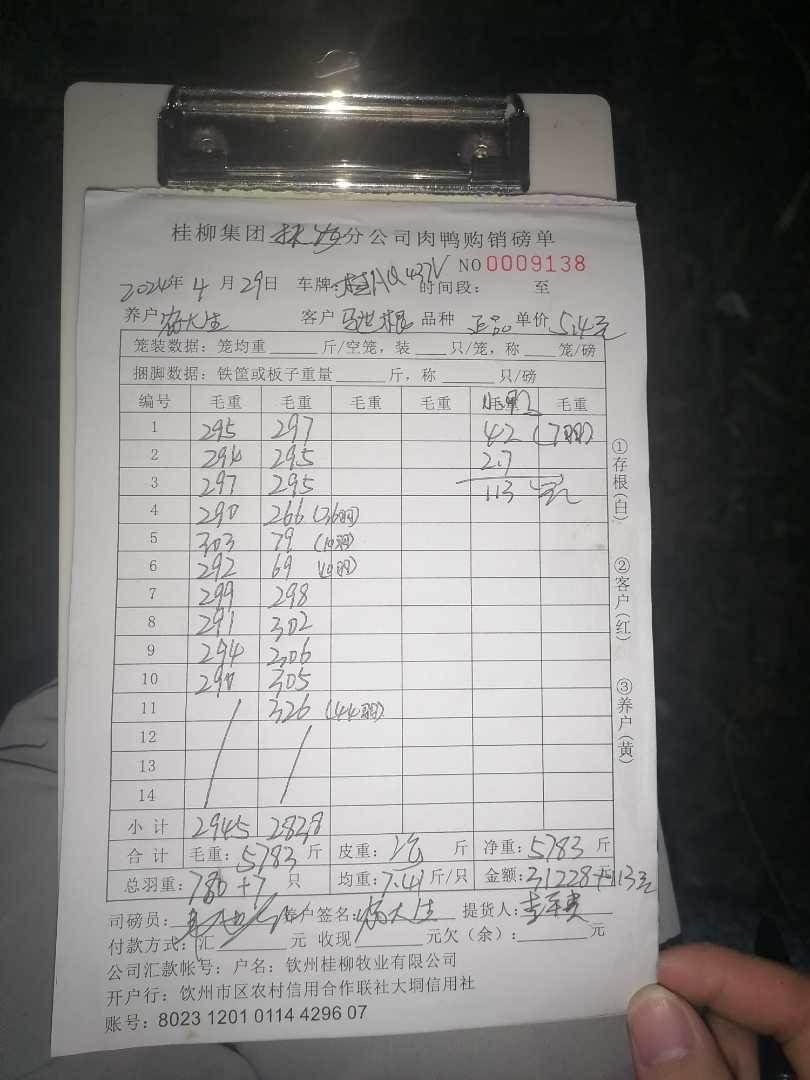 桂柳集团 分公司肉鸭购销磅单
NO 0009138
2024年 4月 29日 车牌: 时间段: 至
养户 大生 客户 品种 正品 单价 5.4元
笼装数据: 笼均重 斤/空笼, 装 只/笼, 称 笼/磅
捆脚数据: 铁筐或板子重量 斤, 称 只/磅
编号 毛重 毛重 毛重 毛重 毛重
1 295 297 42 (7羽)
2 294 295 2.7
3 297 295 113元
4 290 266 (36羽)
5 303 79 (10羽)
6 292 69 (10羽)
7 299 298
8 291 302
9 294 306
10 290 305
11 326 (44羽)
12
13
14
小计 2945 2838
合计 毛重: 5783 斤 皮重: 斤 净重: 5783 斤
总羽重: 780+7 只 均重: 7.41 斤/只 金额: 31228+113元
司磅员: 养户签名: 大生 提货人:
付款方式: 汇 元 收现 元欠(余): 元
公司汇款帐号: 户名: 钦州桂柳牧业有限公司
开户行: 钦州市区农村信用合作联社大垌信用社
账号: 8023 1201 0114 4296 07
①存根(白)
②客户(红)
③养户(黄)